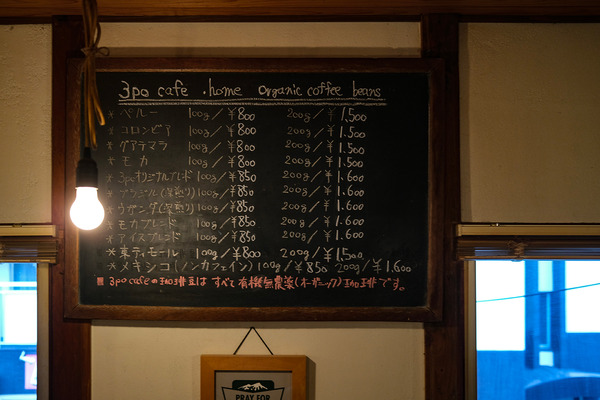 3po cafe .home organic coffee beans
* ペルー 100g/¥800 200g/¥1,500
* コロンビア 100g/¥800 200g/¥1,500
* グアテマラ 100g/¥800 200g/¥1,500
* モカ 100g/¥800 200g/¥1,500
* 3poオリジナルブレンド 100g/¥850 200g/¥1,600
* ブラジル(深煎り) 100g/¥850 200g/¥1,600
* ウガンダ(深煎り) 100g/¥850 200g/¥1,600
* モカブレンド 100g/¥850 200g/¥1,600
* アイスブレンド 100g/¥850 200g/¥1,600
* 東ティモール 100g/¥800 200g/¥1,500
* メキシコ(ノンカフェイン) 100g/¥850 200g/¥1,600
3po cafeの珈琲豆は すべて有機無農薬(オーガニック)珈琲です。
PRAY FOR